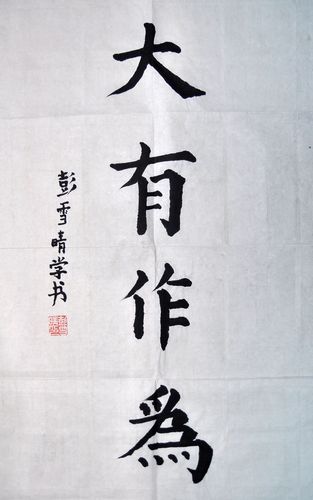 大有作為
彭雪晴学书